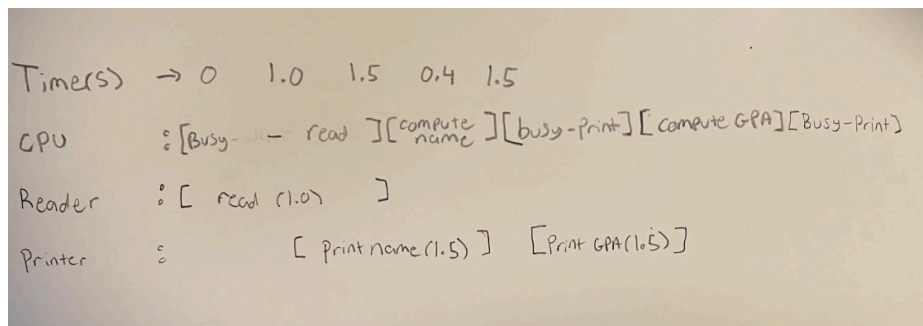 Time(s) → 0 1.0 1.5 0.4 1.5
CPU : [Busy- - read ][compute name ][busy-Print][ compute GPA][Busy-Print]
Reader : [ read (1.0) ]
Printer : [ Print name (1.5) ] [Print GPA (1.5)]